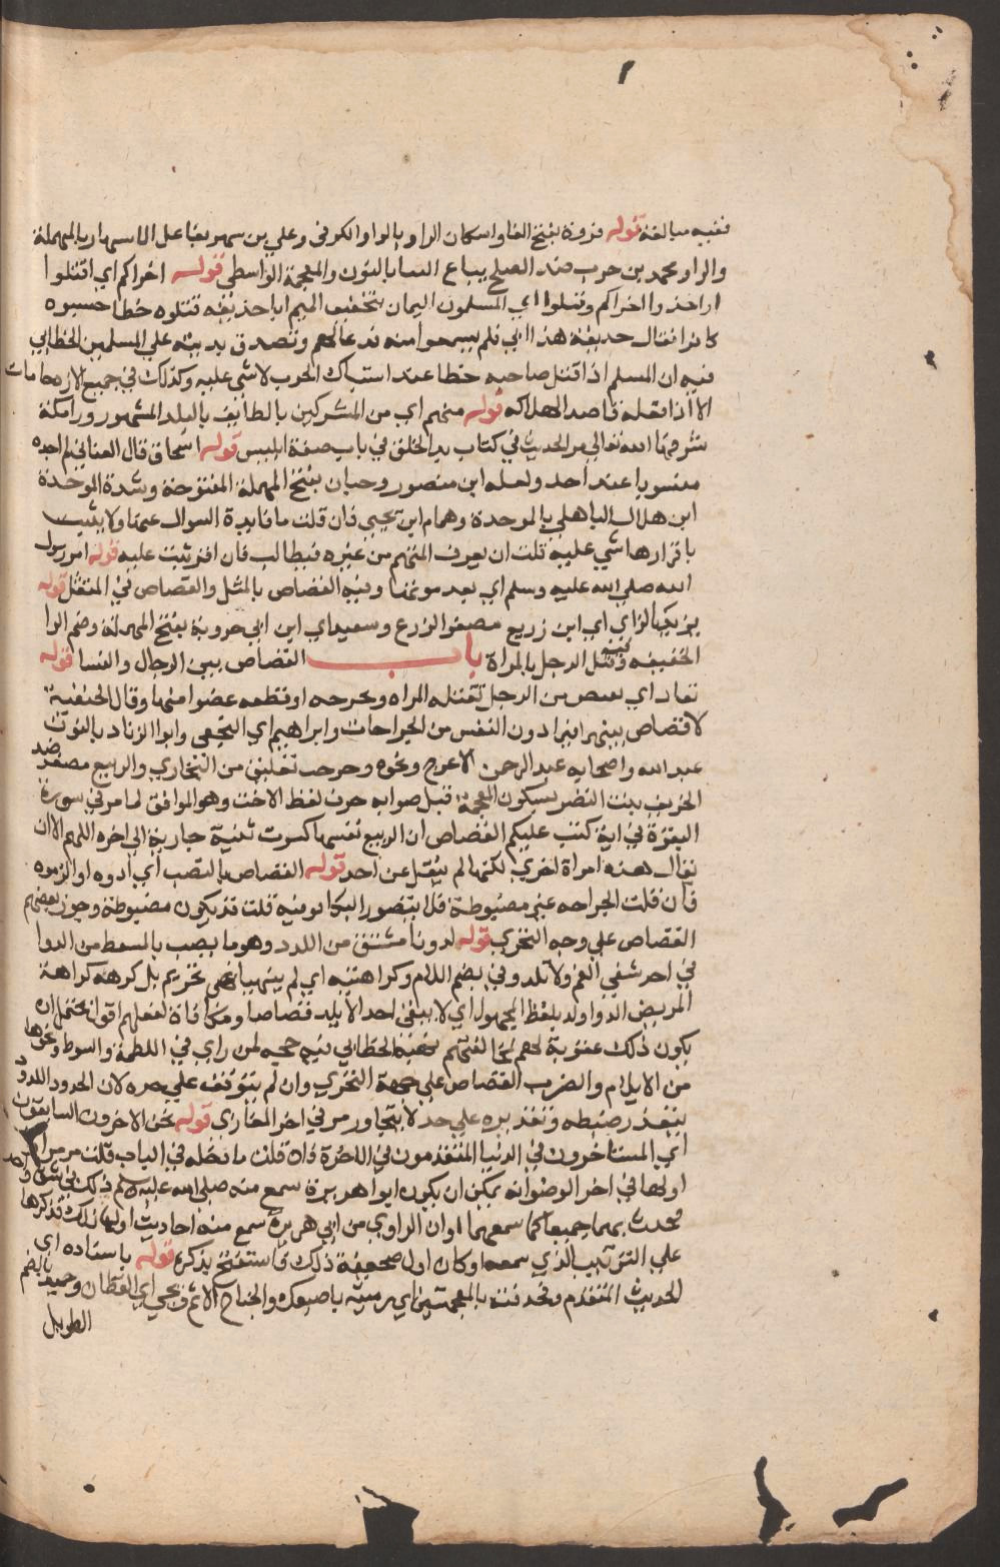 ففيه مبالغة قوله فروة بفتح الفاء واسكان الراء وبالواو الكوفي وعلي بن مسهر بفاعل الاسهار بالمهملة
والراء ومحمد بن حرب ضد الصلح يباع النسا بالنون والمعجمة الواسطي قوله اخراكم اي اقتلوا
او احذروا اخراكم وقتلوا اي المسلمون اليمان بتخفيف الميم ابا حذيفه قتلوه خطا حسبوه
كافرا فقال حذيفة هذا ابي فلم يسمعوا منه فدعا لهم وتصدق بديته علي المسلمين الخطابي
فيه ان المسلم اذا قتل صاحبه خطا عند اشتباك الحرب لا شي عليه وكذلك في جميع الازدحامات
الا اذا فعله قاصدا هلاكه قوله منهم اي من المشركين بالطايف بالبلد المشهور وراء مكة
شرفها الله تعالي مر الحديث في كتاب بدا الخلق في باب صفة ابليس قوله اسحاق قال الغساني لم اجده
منسوبا عند احد ولعله ابن منصور وحبان بفتح المهملة المفتوحة وشدة الموحدة
ابن هلال الباهلي بالموحدة وهمام ابن يحيي فان قلت ما فايدة السوال عنها ولا يثبت
باقرارها شي عليه قلت ان يعرف المتهم من غيره فيطالب فان اقر ثبت عليه قوله امر رسول
الله صلي الله عليه وسلم اي بعد موتها وفيه القصاص بالمثل والقصاص في المثقل قوله
يزيد بالزاي اي ابن زريع مصغر الزرع وسعيد اي ابن ابي عروبة بفتح المهملة وضم الراء
الخفيفه وفيه قتل الرجل بالمراة باب القصاص بين الرجال والنسا قوله
تقاد اي يقتص من الرجل تقتله المراه وبجرحه او قطعه عضوا منها وقال الحنفية
لا قصاص بينهما فيما دون النفس من الجراحات وابراهيم اي النخعي وابو الزناد بالنون
عبد الله واصحابه عبد الرحمن الاعرج ونحوه وجرحت تعليق من البخاري والربيع مصغر ضد
الخريف بنت النضر بسكون المعجمة قيل صوابه حذف لفظ الاخت وهو الموافق لما مر في سورة
البقرة في اية كتب عليكم القصاص ان الربيع نفسها كسرت ثنية جارية الي اخره اللهم الا ان
يقال هذه امراة اخري لكنها لم ينقل عن احد قوله القصاص بالنصب اي ادوه او الزموه
فان قلت الجراحه غير مضبوطة فلا يتصور التكافو فيه قلت قد يكون مضبوطة وجوز بعضهم
القصاص علي وجه التحري قوله لددنا مشتق من اللدد وهو ما يصب بالمسعط من الدوا
في احد شقي الفم ولا تلدوني بضم اللام وكراهية اي لم ينهنا نهي تحريم بل كرهه كراهة
المريض الدوا ولد بلفظ المجهول اي لا يبقي احد الا يلد قصاصا ومكافاة لفعلهم اقول يحتمل ان
يكون ذلك عقوبة لهم لمخالفتهم نهيه الخطابي فيه حجه لمن راي في اللطمة والسوط ونحوها
من الايلام والضرب القصاص علي جهة التحري وان لم يتوقف علي حده لان اللدود
يتعذر ضبطه وتقديره علي حد لا يتجاوز مر في اخر المغازي قوله نحن الاخرون السابقون
اي المستاخرون في الدنيا المتقدمون في الاخرة فان قلت ما دخله في الباب قلت مر مرارا
اولها في اخر الوضو انه يمكن ان يكون ابو هريرة سمع منه صلي الله عليه وسلم ذلك في نسق واحد
فحدث بهما جميعا كما سمعهما او ان الراوي من ابي هريرة سمع منه احاديث اولها ذلك فذكرها
علي الترتيب الذي سمعه او كان اول صحيفة ذلك فاستفتح بذكره قوله باسناده اي
الحديث المتقدم وخذفته بالمعجمتين اي رميته باصبعك والجناح الاثم ويحيي اي القطان وحميد بالضم
الطويل